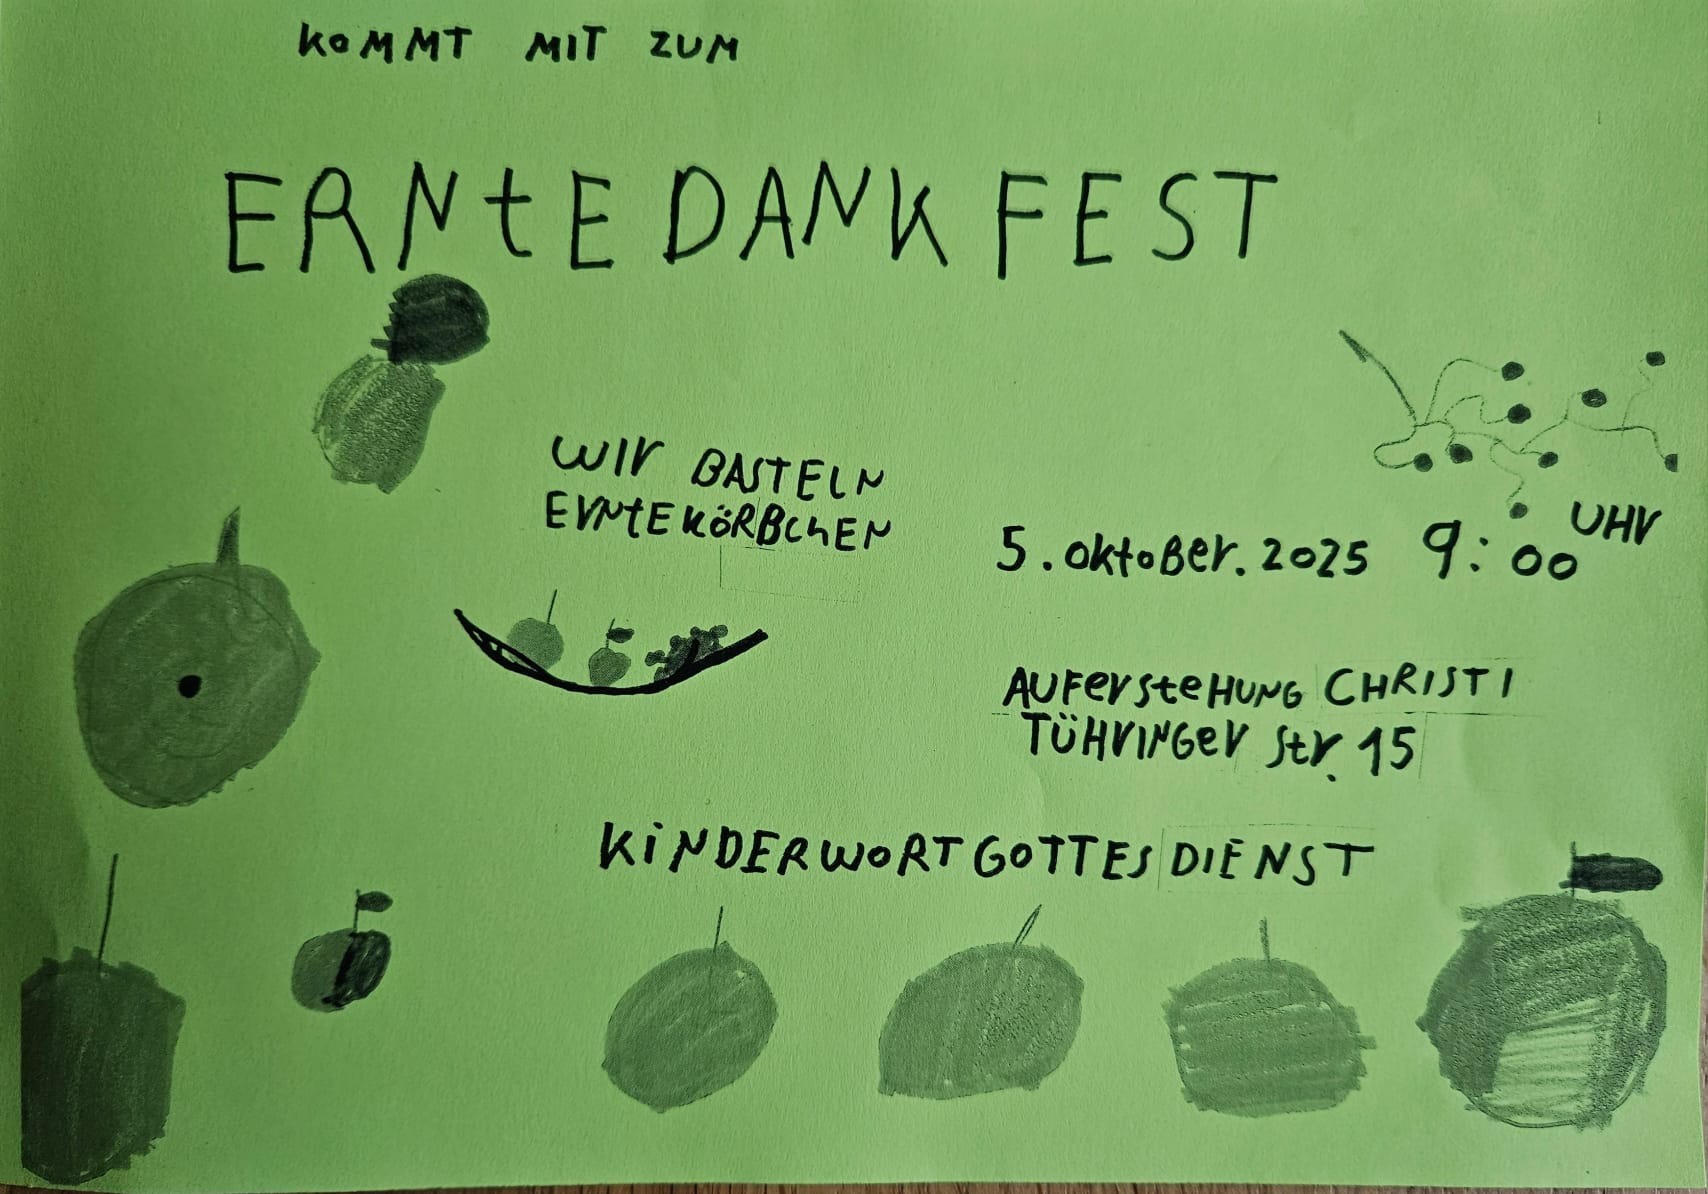 KOMMT MIT ZUM
ERNtE DANK FEST
WIr BASTELN
ErNtEKÖRBchEN
5. Oktober. 2025 9:00 UHr
AUFerSteHUNG CHRISTI
TÜHrINGer Str. 15
KiNDERWORTGOTTESDIENST